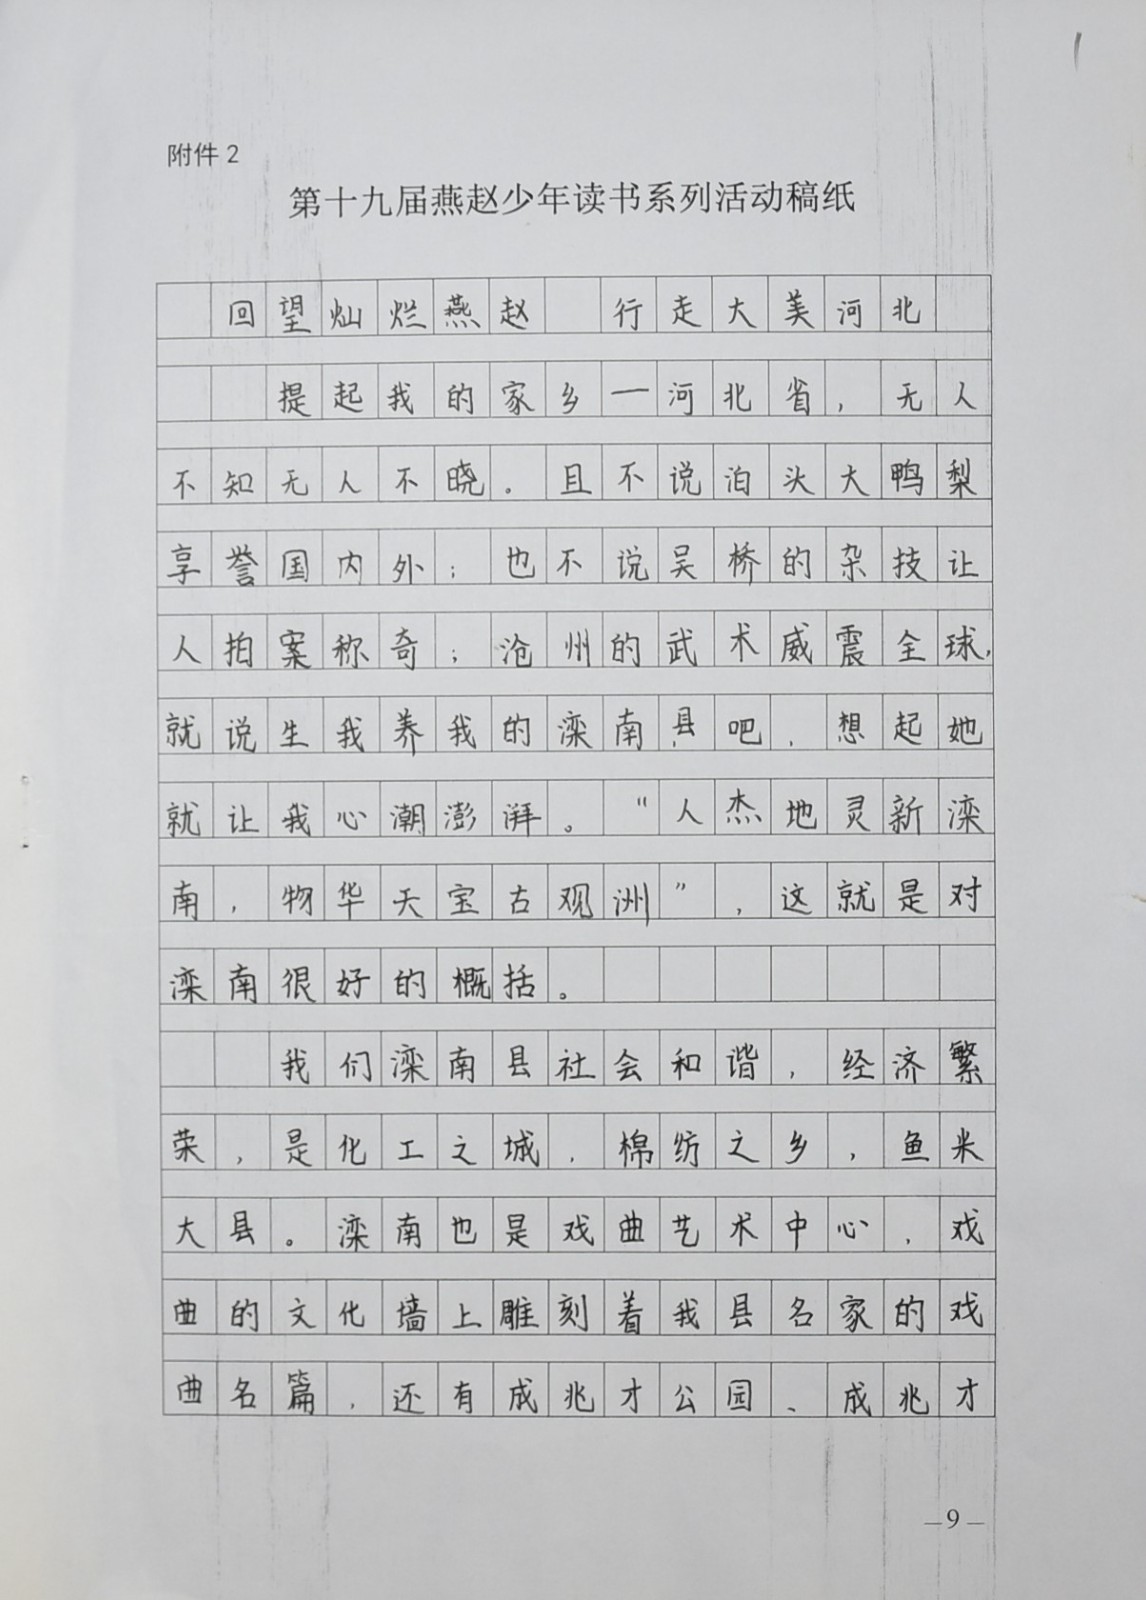 附件2
第十九届燕赵少年读书系列活动稿纸
回望灿烂燕赵 行走大美河北
提起我的家乡一河北省，无人
不知无人不晓。且不说泊头大鸭梨
享誉国内外；也不说吴桥的杂技让
人拍案称奇；沧州的武术威震全球，
就说生我养我的滦南县吧，想起她
就让我心潮澎湃。“人杰地灵新滦
南，物华天宝古观洲”，这就是对
滦南很好的概括。
我们滦南县社会和谐，经济繁
荣，是化工之城，棉纺之乡，鱼米
大县。滦南也是戏曲艺术中心，戏
曲的文化墙上雕刻着我县名家的戏
曲名篇，还有成兆才公园、成兆才
—9—